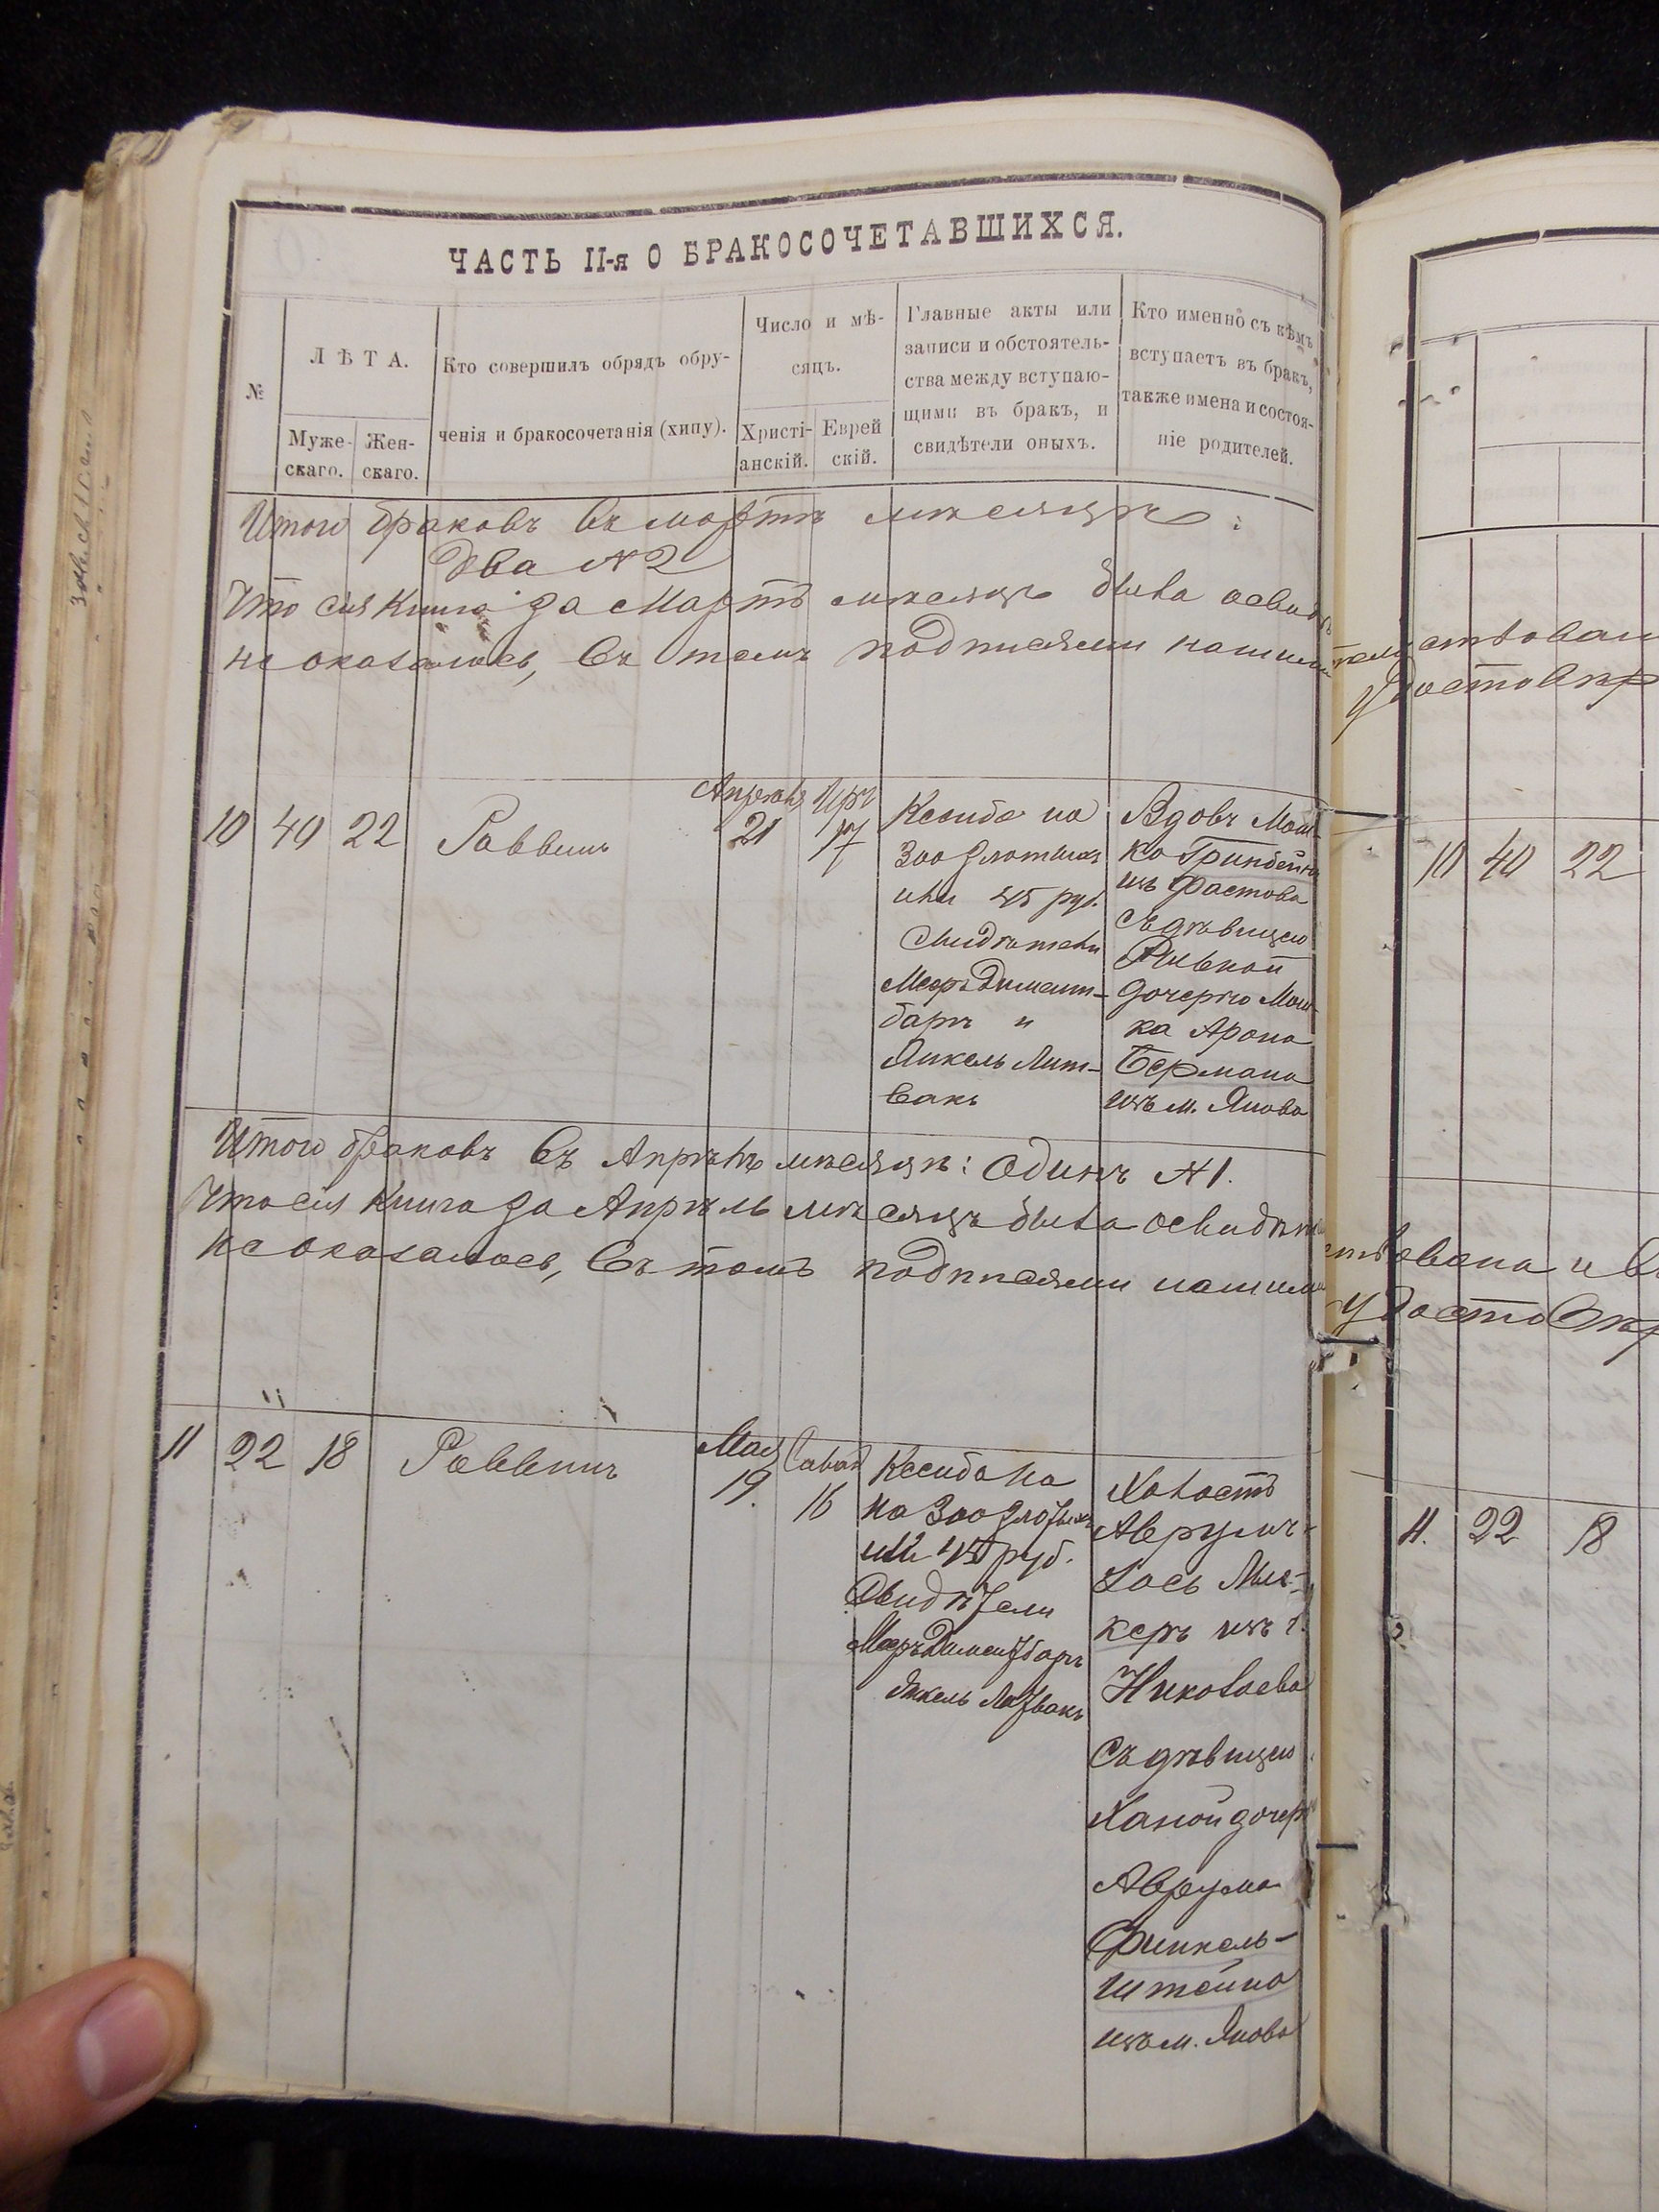 ЧАСТЬ II-я О БРАКОСОЧЕТАВШИХСЯ.
№
ЛѢТА.
Муже-
скаго.
Жен-
скаго.
Кто совершилъ обрядъ обру-
ченія и бракосочетанія (хипу).
Число и мѣ-
сяцъ.
Христі-
анскій.
Еврей
скій.
Главные акты или
записи и обстоятель-
ства между вступаю-
щими въ бракъ, и
свидѣтели оныхъ.
Кто именно съ кѣмъ
вступаетъ въ бракъ,
также имена и состоя-
ніе родителей.
Итого браковъ въ мартѣ месяцѣ:
два №2
Что сія Книга за Мартъ месяцъ была освидѣ
не оказалось, въ томъ подписями нашими
10 40 22 Раввинъ
Апрѣля
21
Иръ
17
Ксиба на
300 злотыхъ
или 45 руб.
Свидѣтели
Мееръ Димент-
барг и
Янкель Лит-
вакъ
Вдовъ Мош-
ко Гринбейнъ
изъ Фастова
съ дѣвицею
Ривкой
дочерью Мош-
ка Арона
Бермана
изъ м. Янова
Итого браковъ въ Апрѣлѣ месяцѣ: Одинъ №1.
Что сія Книга за Апрѣль мѣсяцъ была освидѣте
не оказалось, въ томъ подписями нашими
11 22 18 Раввинъ
Мая
19.
16
Ксиба на
на 300 злотыхъ
или 45 руб.
Свидѣтели
Мееръ Диментбаргъ
Янкель Литвакъ
Холостъ
Аврумъ
Іось
керъ изъ г.
Николаева
съ дѣвицею
Ханой дочерью
Аврума
Финкель-
штейна
изъ м. Янова
ствован
удостовѣр
10 40 22
ствована и в
удостовѣр
11. 22 18